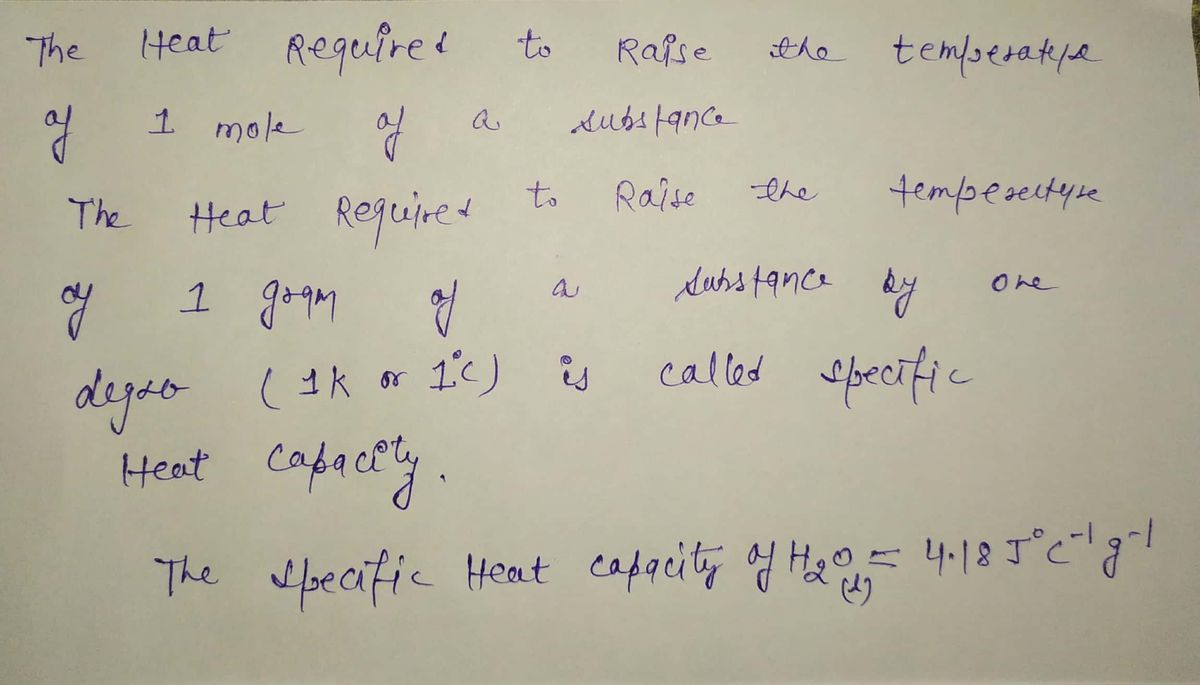 The Heat Required to Raise the temperature
of 1 mole of a substance
The Heat Required to Raise the temperature
of 1 gram of a substance by one
degree (1K or 1°C) is called specific
Heat capacity.
The specific Heat capacity of H₂O(l) = 4.18 J°C⁻¹g⁻¹